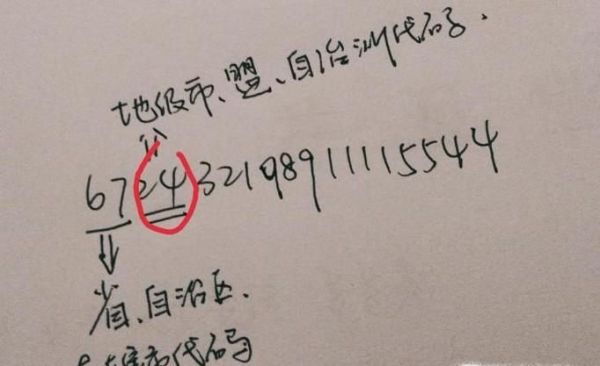 地级市、盟、自治洲代码.
672432198911115544
省、自治区、
直辖市代码